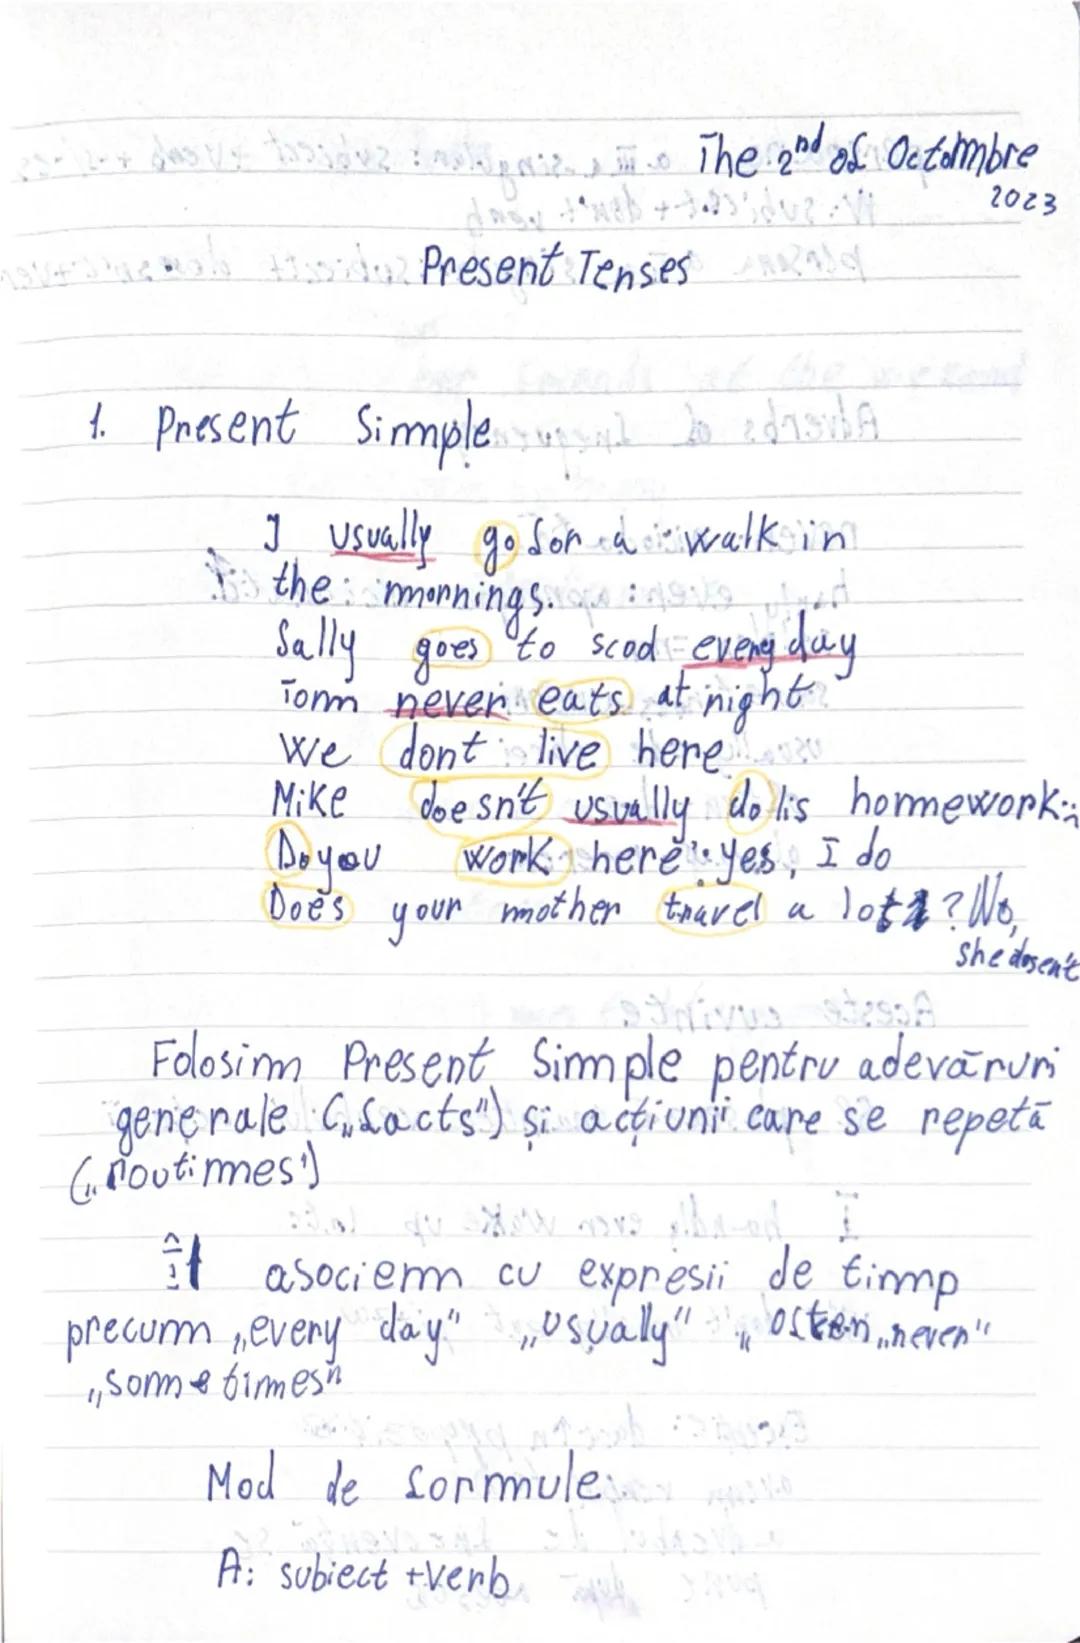 The 2nd of Octombre
2023
Present Tenses
1. Present Simple
I usually go for a walk in
the mornings.
Sally goes to scod every day
Tom never eats at night
We dont live here
Mike doesn't usually do his homework
Do you work here? yes, I do
Does your mother travel a lot? No,
she dosen't
Folosim Present Simple pentru adevăruri
generale („facts") și acțiunii care se repetă
(„routimes")
Îl asociem cu expresii de timp
precum „every day" „usually" „often „never"
„sometimes"
Mod de formule:
A: subiect + verb